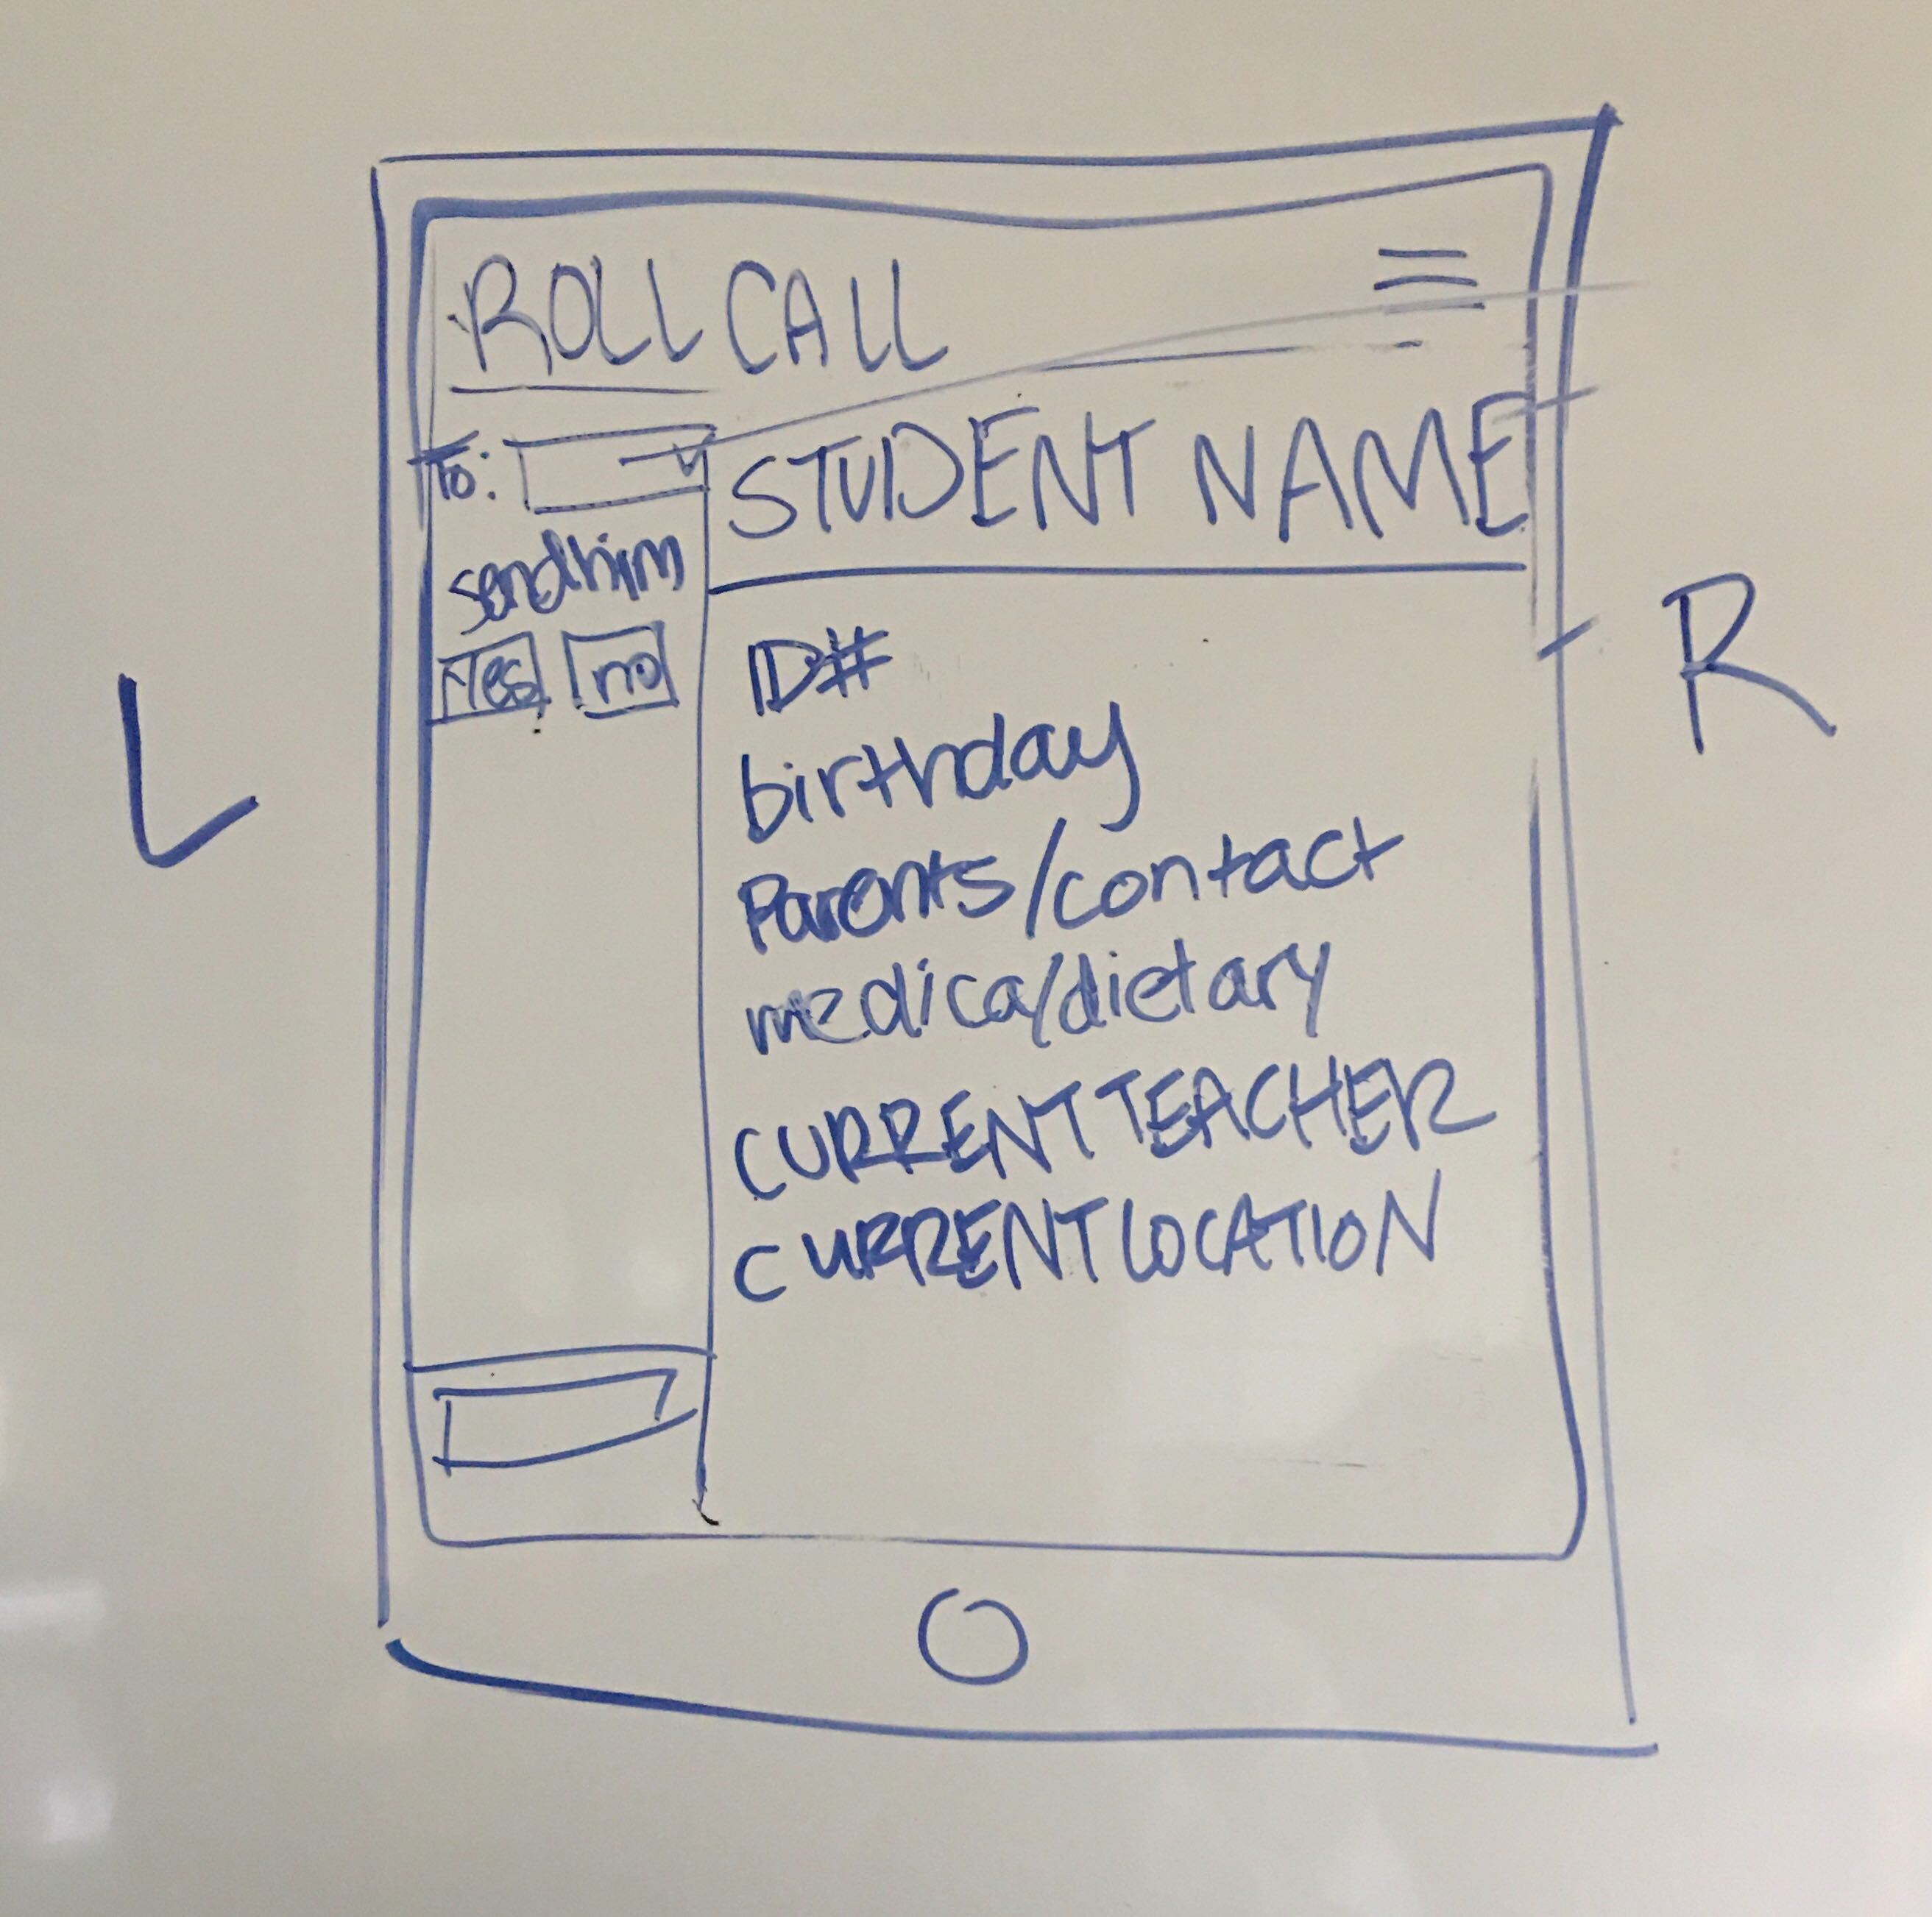 ROLL CALL
To:
send him
Yes no
STUDENT NAME
ID#
birthday
Parents/contact
medical/dietary
CURRENT TEACHER
CURRENT LOCATION
L
R